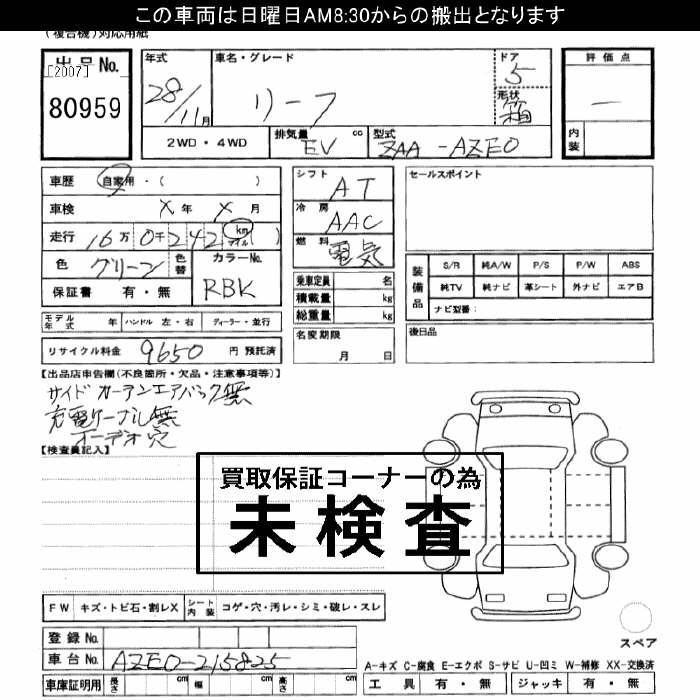 この車両は日曜日AM8:30からの搬出となります
(複合機)対応用紙
出品No.
[2007]
80959
年式
28/11月
車名・グレード
リーフ
ドア
5
形状
箱
評価点
—
内装
2WD・4WD
排気量 cc
EV
型式
ZAA-AZE0
車歴 自家用・( )
車検 X年 X月
走行 16万0千242 km マイル ( )
色 グリーン 色替
カラーNo.
RBK
保証書 有・無
モデル年式 年 ハンドル 左・右 ディーラー・並行
リサイクル料金 9650 円 預託済
シフト AT
冷房 AAC
燃料 電気
乗車定員 名
積載量 kg
総重量 kg
名変期限
月 日
セールスポイント
装備品
S/R 純A/W P/S P/W ABS
純TV 純ナビ 革シート 外ナビ エアB
ナビ型番:
後日品
【出品店申告欄(不良箇所・欠品・注意事項等)】
サイドカーテンエアバック無
充電ケーブル無
オーデオ穴
【検査員記入】
買取保証コーナーの為
未検査
FW キズ・トビ石・割レX シート内装 コゲ・穴・汚レ・シミ・破レ・スレ
登録No.
車台No. AZE0-215825
車庫証明用 長さ cm 幅 cm 高さ cm
スペア
A-キズ C-腐食 E-エクボ S-サビ U-凹ミ W-補修 XX-交換済
工具 有・無 ジャッキ 有・無